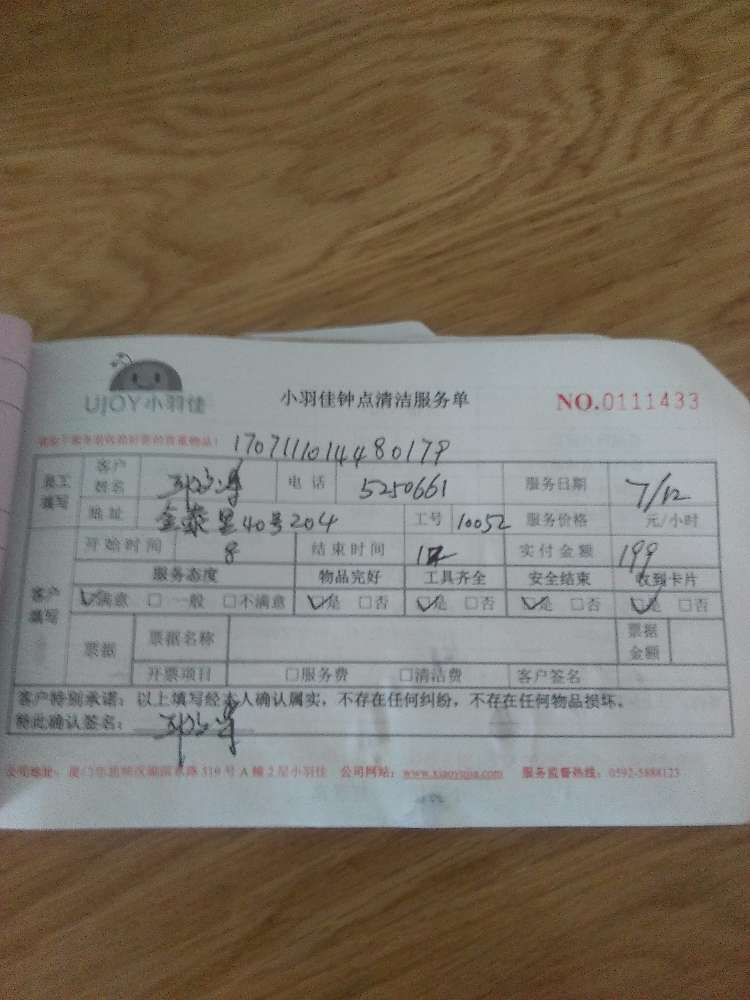 UJOY小羽佳
小羽佳钟点清洁服务单
NO.0111433
1707111014480179
员工填写 客户姓名 电话 5250661 服务日期 7/12
地址 金泰里40号204 工号 10052 服务价格 元/小时
客户填写 开始时间 8 结束时间 12 实付金额 199
服务态度 物品完好 工具齐全 安全结束 收到卡片
☑满意 □一般 □不满意 ☑是 □否 ☑是 □否 ☑是 □否 ☑是 □否
票据 票据名称 票据金额
开票项目 □服务费 □清洁费 客户签名
客户特别承诺：以上填写经本人确认属实，不存在任何纠纷，不存在任何物品损坏。
特此确认签名：
公司地址：厦门市思明区湖滨东路319号A幢2层小羽佳 公司网站：www.xiaoyujia.com 服务监督热线：0592-5888123